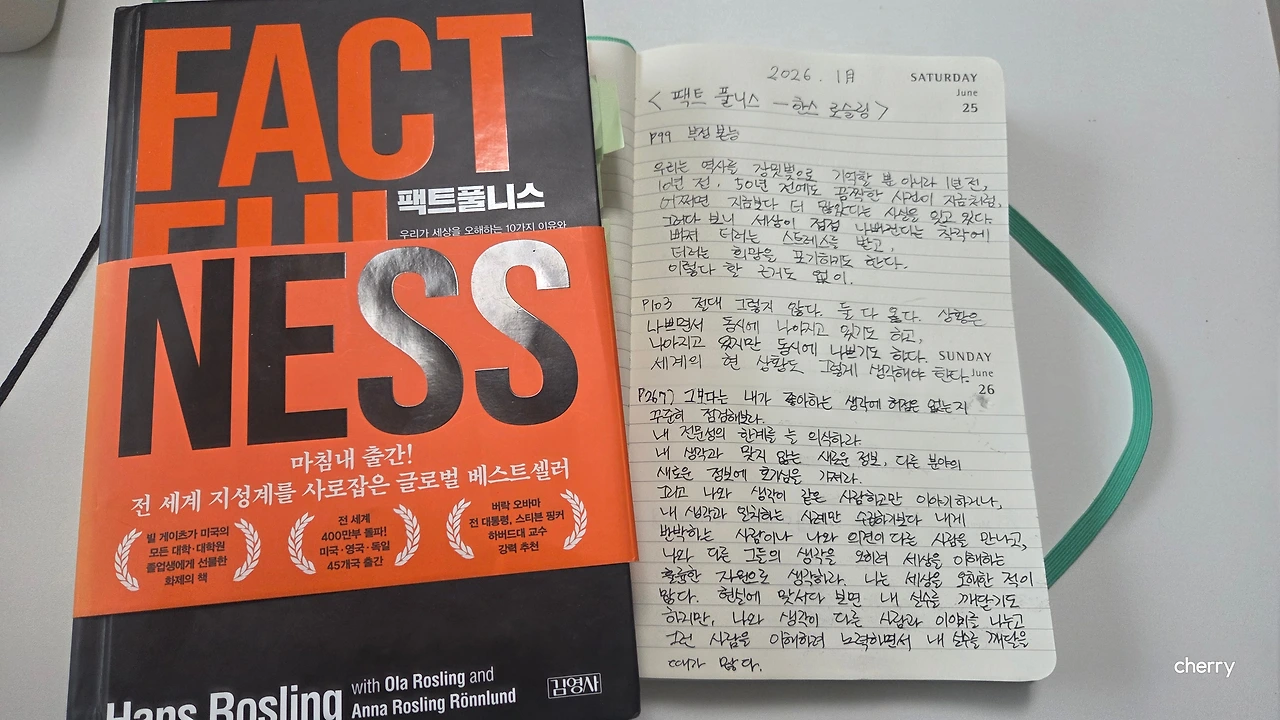 FACT
FUL
팩트풀니스
우리가 세상을 오해하는 10가지 이유와
NESS
마침내 출간!
전 세계 지성계를 사로잡은 글로벌 베스트셀러
빌 게이츠가 미국의
모든 대학·대학원
졸업생에게 선물한
화제의 책
전 세계
400만부 돌파!
미국·영국·독일
45개국 출간
버락 오바마
전 대통령, 스티븐 핑커
하버드대 교수
강력 추천
Hans Rosling
with Ola Rosling and
Anna Rosling Rönnlund
김영사
2026. 1月
SATURDAY
June
25
<팩트 풀니스 - 한스 로슬링>
P99 부정 본능
우리는 역사를 장밋빛으로 기억할 뿐 아니라 1년 전,
10년 전, 50년 전에도 끔찍한 사건이 지금처럼,
어쩌면 지금보다 더 많았다는 사실을 잊고 있다.
그러다 보니 세상이 점점 나빠진다는 착각에
빠져 더러는 스트레스를 받고,
더러는 희망을 포기하기도 한다.
이렇다 할 근거도 없이.
P103 절대 그렇지 않다. 둘 다 옳다. 상황은
나쁘면서 동시에 나아지고 있기도 하고,
나아지고 있지만 동시에 나쁘기도 하다.
세계의 현 상황도 그렇게 생각해야 한다.
SUNDAY
June
26
P267) 그보다는 내가 좋아하는 생각에 허점은 없는지
꾸준히 점검해보라.
내 전문성의 한계를 늘 의식하라.
내 생각과 맞지 않는 새로운 정보, 다른 분야의
새로운 정보에 호기심을 가져라.
그리고 나와 생각이 같은 사람하고만 이야기하거나,
내 생각과 일치하는 사례만 수집하기보다 내게
반박하는 사람이나 나와 의견이 다른 사람을 만나고,
나와 다른 그들의 생각을 오히려 세상을 이해하는
훌륭한 자원으로 생각하라. 나는 세상을 오해한 적이
많다. 현실에 맞서다 보면 내 실수를 깨닫기도
하지만, 나와 생각이 다른 사람과 이야기를 나누고
그런 사람을 이해하려 노력하면서 내 실수를 깨달을
때가 많다.
cherry